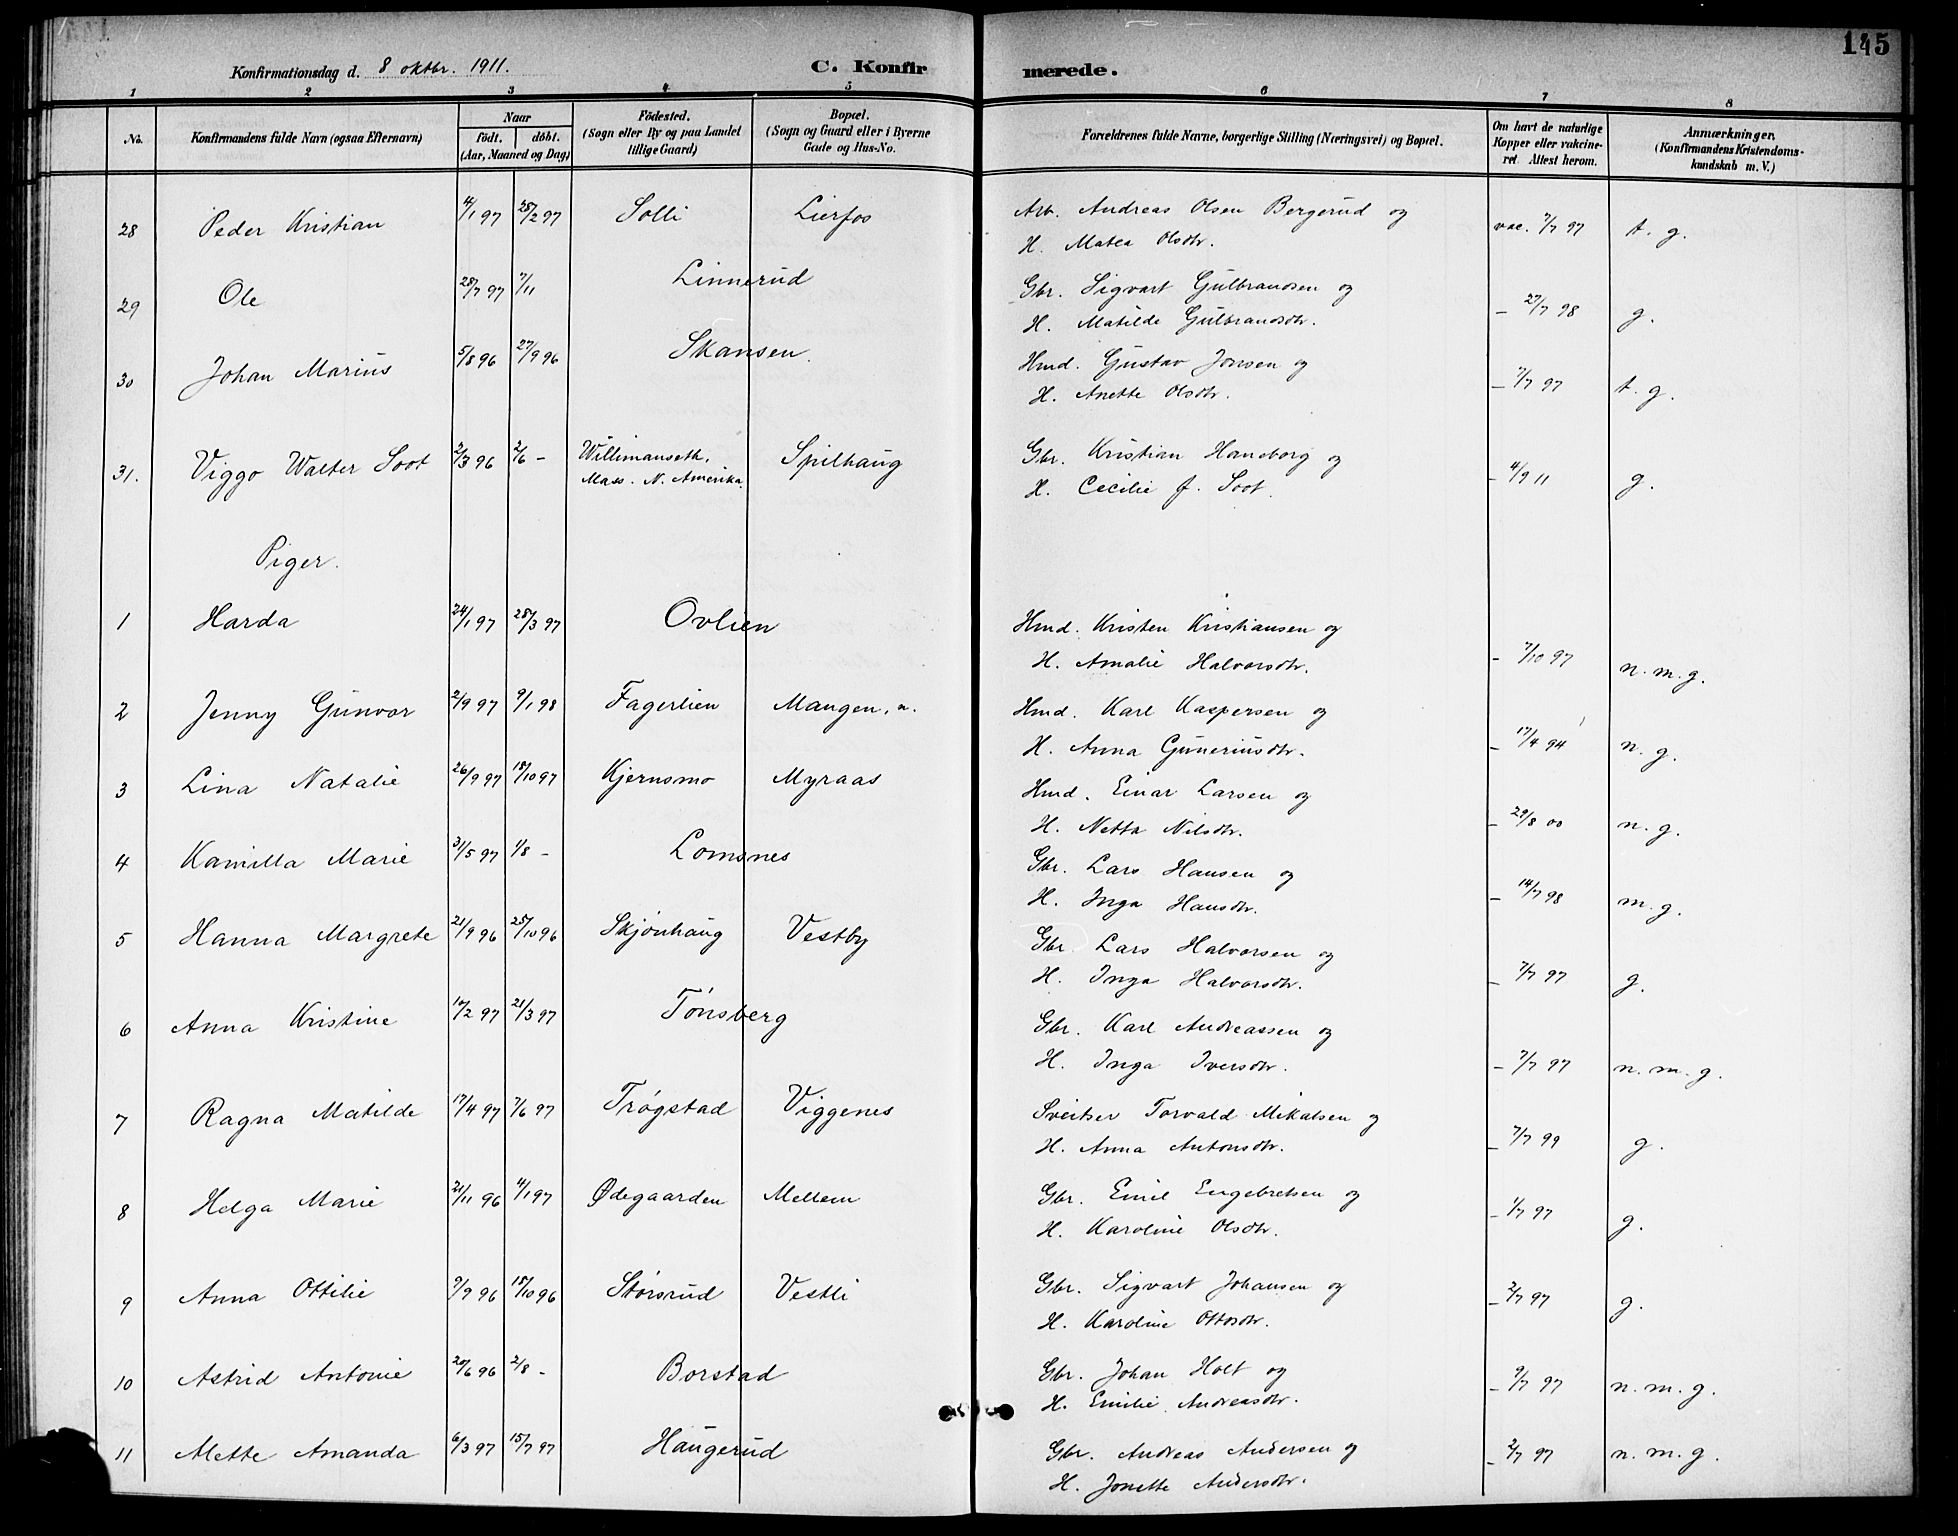 145
Konfirmationsdag d. 8 oktbr. 1911. C. Konfirmerede.
1 2 3 4 5 6 7 8
No. Konfirmandens fulde Navn (ogsaa Efternavn) Naar födt. döbt. (Aar, Maaned og Dag) Födested. (Sogn eller By og paa Landet tillige Gaard) Bopæl. (Sogn og Gaard eller i Byerne Gade og Hus-No. Forældrenes fulde Navne, borgerlige Stilling (Næringsvei) og Bopæl. Om havt de naturlige Kopper eller vakcineret. Attest herom. Anmærkninger. (Konfirmandens Kristendomskundskab m. V.)
28 Peder Kristian 4/1 97 28/2 97 Solli Lierfos Arb. Andreas Olsen Bergerud og vac. 7/7 97 t. g.
H. Matea Olsdtr.
29 Ole 28/7 97 7/11 Linnerud Gbr. Sigvart Gulbrandsen og
H. Matilde Gulbrandsdtr. - 27/7 98 g.
30 Johan Marius 5/8 96 27/9 96 Skansen. Hmd. Gustav Jonsen og
H. Anette Olsdtr. - 7/7 97 t. g.
31. Viggo Walter Soot 2/3 96 2/6 - Willimanseth, Mass. N. Amerika. Spilhaug Gbr. Kristian Haneborg og
H. Cecilie f. Soot. - 4/9 11 g.
Piger.
1 Harda 24/1 97 28/3 97 Ovlien Hmd. Kristen Kristiansen og
H. Amalie Halvorsdtr. - 7/10 97 n. m. g.
2 Jenny Gunvor 2/9 97 9/1 98 Fagerlien Mangen, n. Hmd. Karl Kaspersen og
H. Anna Guneriusdtr. - 17/4 94 n. g.
3 Lina Natalie 26/9 97 18/10 97 Kjernsmo Myraas Hmd. Einar Larsen og
H. Netta Nilsdtr. - 29/8 00 n. g.
4 Kamilla Marie 31/5 97 1/8 - Lomsnes Gbr. Lars Hansen og
H. Inga Hansdtr. - 14/7 98 m. g.
5 Hanna Margrete 21/9 96 25/10 96 Skjönhaug Vestby Gbr. Lars Halvorsen og
H. Inga Halvorsdtr. - 7/7 97 g.
6 Anna Kristine 14/2 97 21/3 97 Tönsberg Gbr. Karl Andreassen og
H. Inga Iversdtr. - 7/7 97 n. m. g.
7 Ragna Matilde 17/4 97 7/6 97 Trögstad Viggenes Sveitser Torvald Mikalsen og
H. Anna Antonsdtr. - 7/7 99 g.
8 Helga Marie 21/11 96 4/1 97 Ødegaarden Mellem Gbr. Emil Engebretsen og
H. Karoline Olsdtr. - 1/7 97 g.
9 Anna Ottilie 7/9 96 18/10 96 Störsrud Vestli Gbr. Sigvart Johansen og
H. Karoline Ottosdtr. - 2/7 97 g.
10 Astrid Antonie 20/6 96 2/8 - Borstad Gbr. Johan Holt og
H. Emilie Andreasdtr. - 9/7 97 n. m. g.
11 Mette Amanda 6/3 97 15/7 97 Haugerud Gbr. Andreas Andersen og
H. Jonette Andersdtr. - 2/7 97 n. m. g.